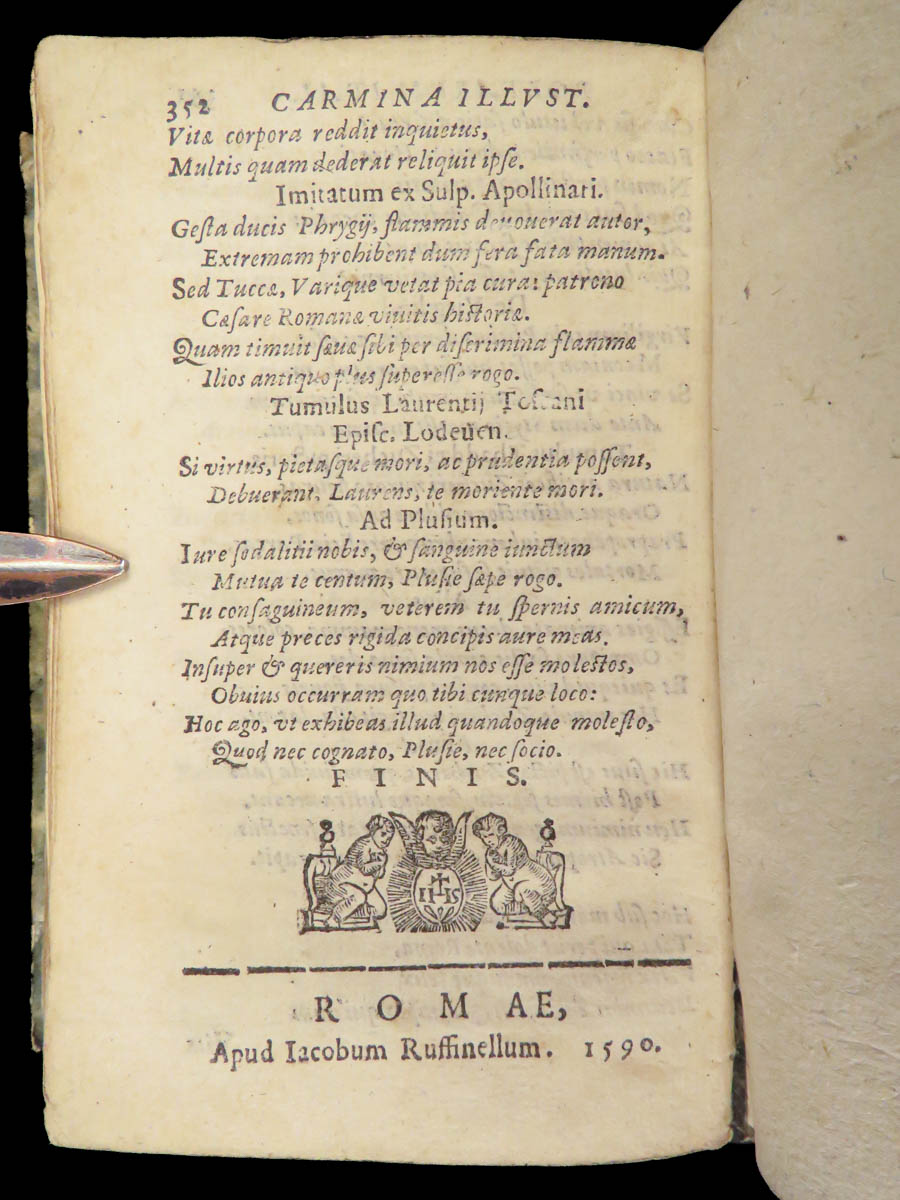 352 CARMINA ILLVST.
Vitæ corpora reddit inquietus,
Multis quam dederat reliquit ipse.
Imitatum ex Sulp. Apollinari.
Geſta ducis Phrygij, flammis deuouerat autor,
Extremam prohibent dum fera fata manum.
Sed Tuccæ, Varique vetat pia cura: patrono
Cæſare Romanæ viuitis hiſtoriæ.
Quam timuit ſæuæ ſibi per diſcrimina flammæ
Ilios antiquo plus ſupereſſe rogo.
Tumulus Laurentij Toſcani
Epiſc. Lodeuen.
Si virtus, pietaſque mori, ac prudentia poſſent,
Debuerant, Laurens, te moriente mori.
Ad Pluſium.
Iure ſodalitii nobis, & ſanguine iunctum
Mutua te centum, Pluſie ſæpe rogo.
Tu conſaguineum, veterem tu ſpernis amicum,
Atque preces rigida concipis aure meas.
Inſuper & quereris nimium nos eſſe moleſtos,
Obuius occurram quo tibi cunque loco:
Hoc ago, vt exhibeas illud quandoque moleſto,
Quod nec cognato, Pluſie, nec ſocio.
FINIS.
IHS
ROMAE,
Apud Iacobum Ruffinellum. 1590.